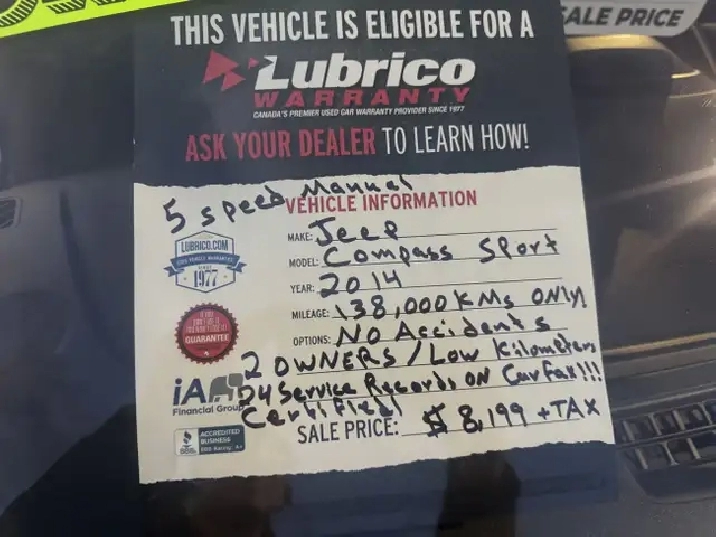 SALE PRICE
THIS VEHICLE IS ELIGIBLE FOR A
Lubrico
WARRANTY
CANADA'S PREMIER USED CAR WARRANTY PROVIDER SINCE 1977
ASK YOUR DEALER TO LEARN HOW!
5 speed Manual
VEHICLE INFORMATION
LUBRICO.COM
USED VEHICLE WARRANTIES
SINCE
1977
MAKE: Jeep
MODEL: Compass Sport
YEAR: 2014
MILEAGE: 138,000 KMs ONLY!
OPTIONS: NO Accidents
GUARANTEE
2 OWNERS / Low Kilometers
24 Service Records ON CarFax!!!
iA
Financial Group
Certified!
SALE PRICE: $ 8,199 + TAX
BBB
ACCREDITED
BUSINESS
BBB Rating: A+